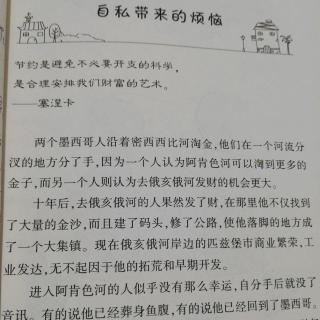 自私带来的烦恼
节约是避免不必要开支的科学，
是合理安排我们财富的艺术。
——塞涅卡
两个墨西哥人沿着密西西比河淘金，他们在一个河流分
汊的地方分了手，因为一个人认为阿肯色河可以淘到更多的
金子，而另一个人则认为去俄亥俄河发财的机会更大。
十年后，去俄亥俄河的人果然发了财，在那里他不仅找到
了大量的金沙，而且建了码头，修了公路，使他落脚的地方成
了一个大集镇。现在俄亥俄河岸边的匹兹堡市商业繁荣，工
业发达，无不起因于他的拓荒和早期开发。
进入阿肯色河的人似乎没有那么幸运，自分手后就没了
音讯。有的说他已经葬身鱼腹，有的说他已经回到了墨西哥。